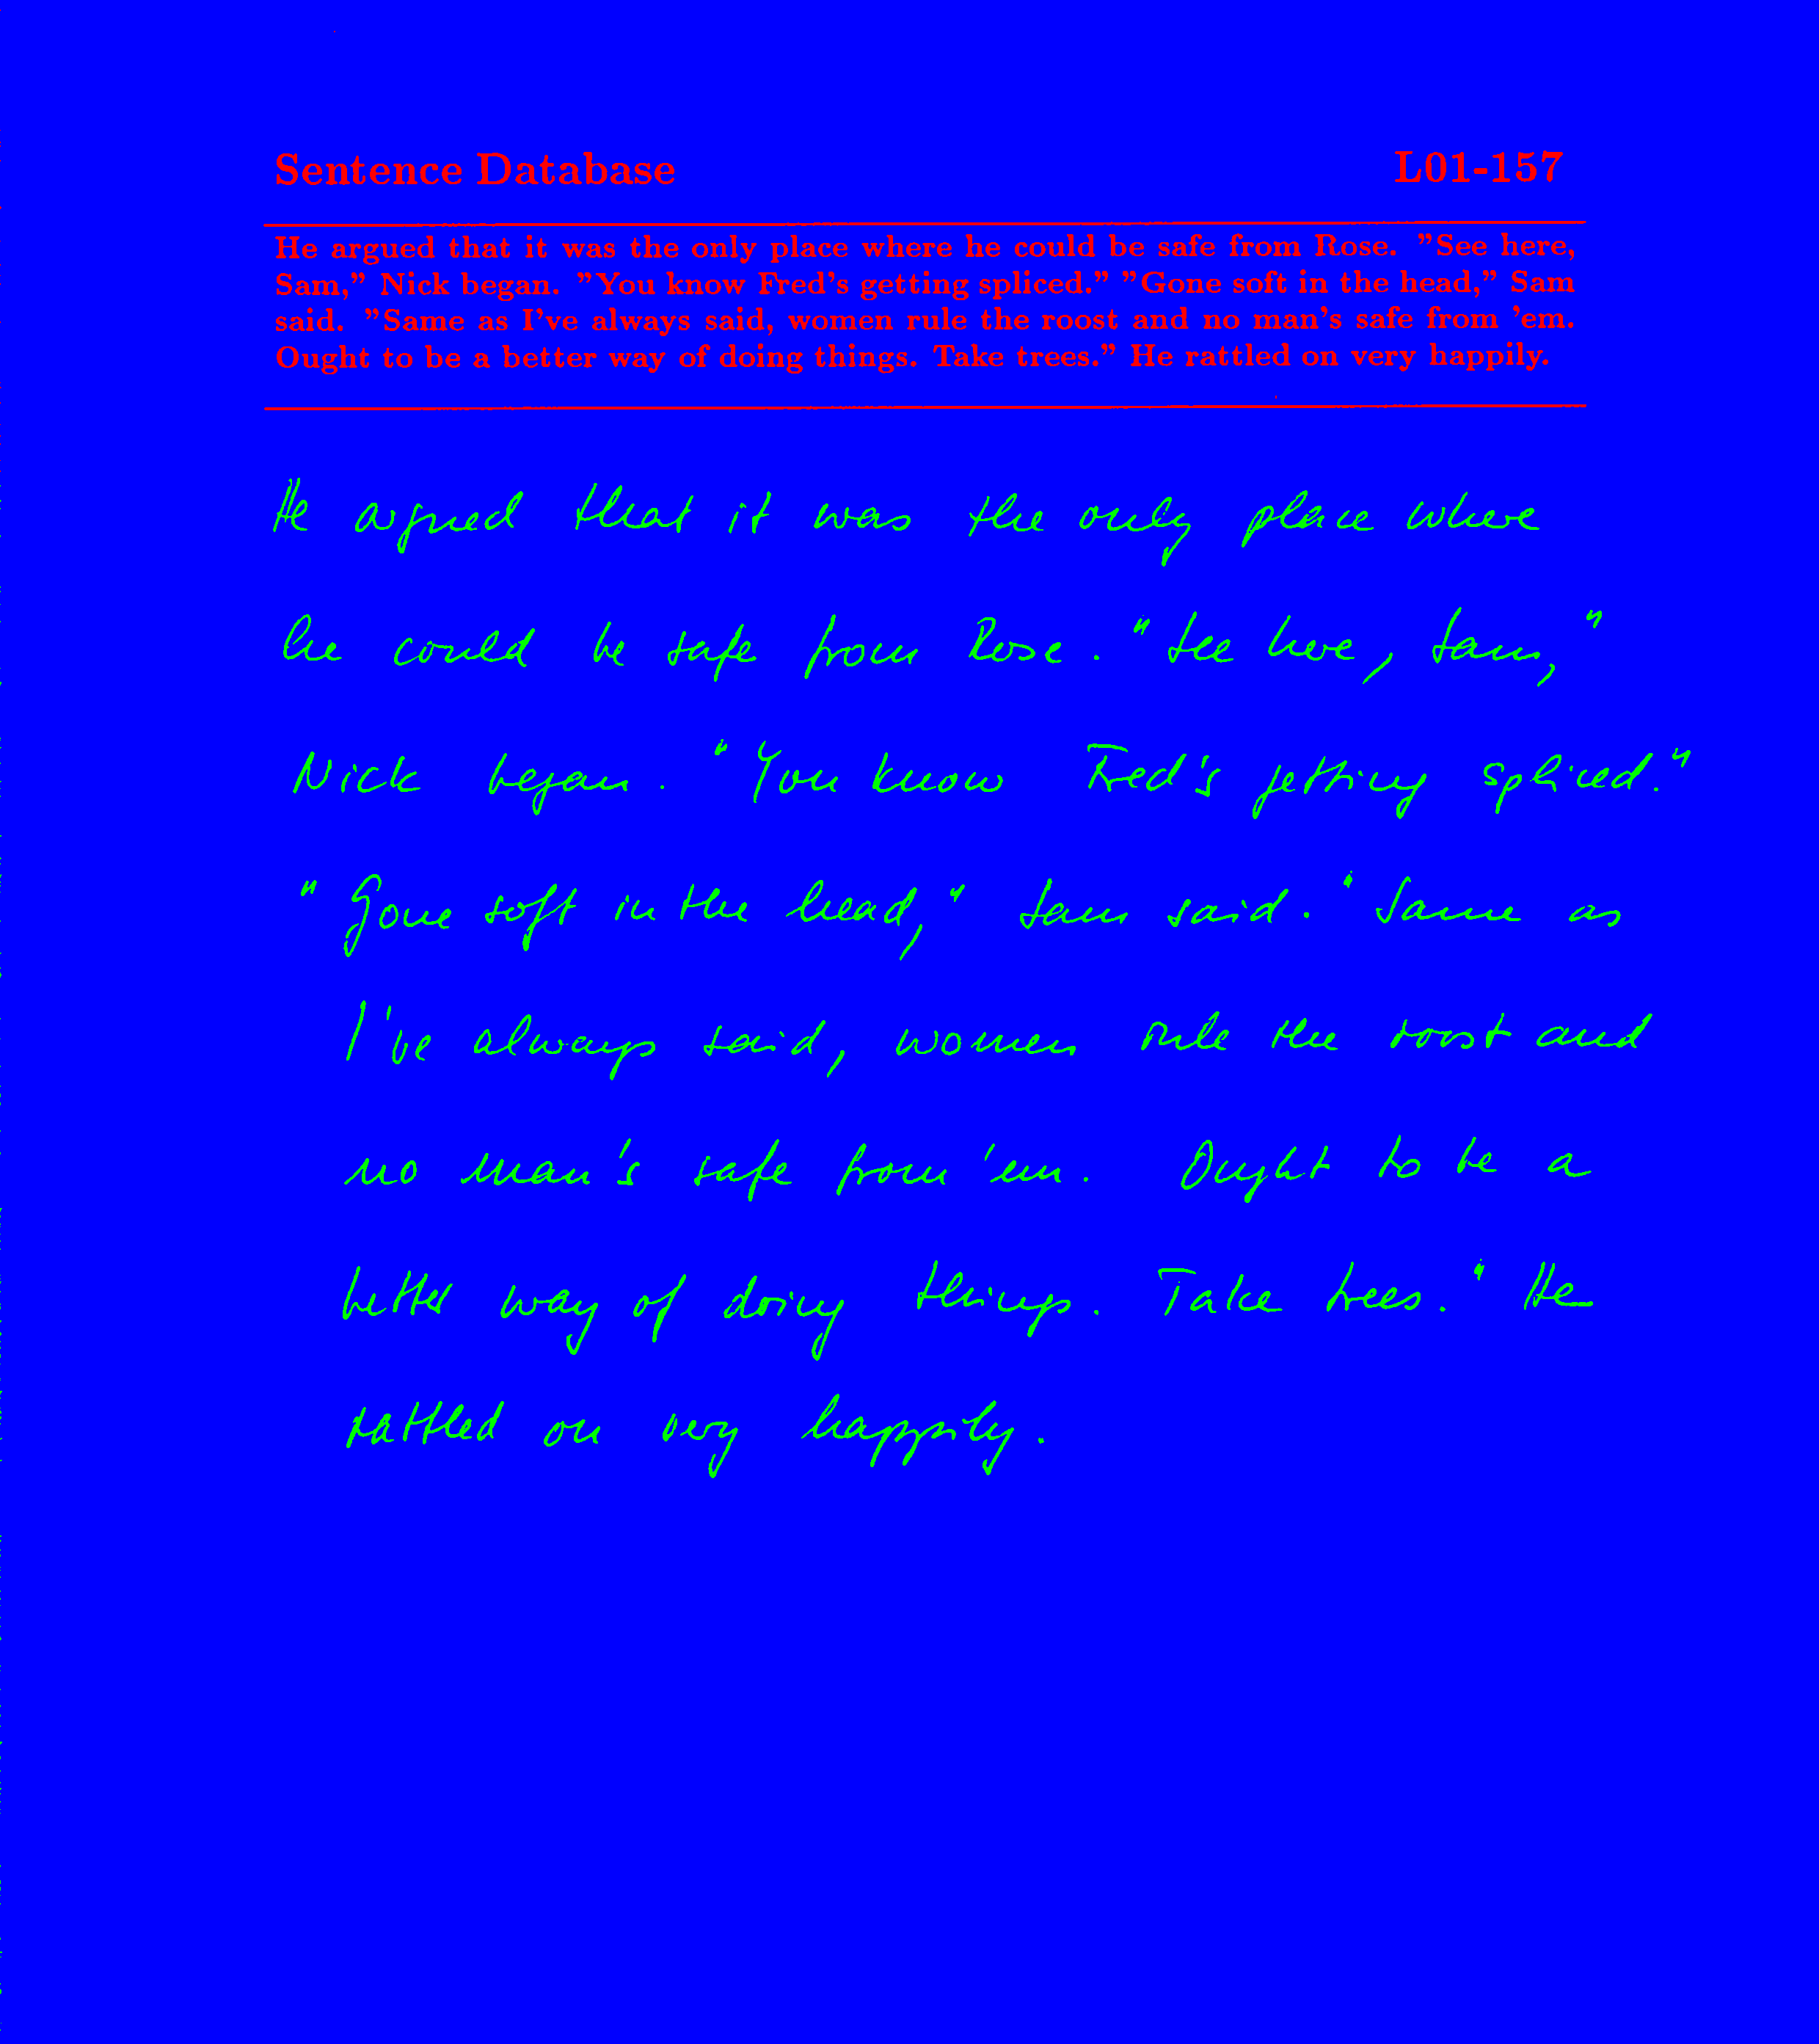 Sentence Database L01-157
He argued that it was the only place where he could be safe from Rose. "See here,
Sam," Nick began. "You know Fred's getting spliced." "Gone soft in the head," Sam
said. "Same as I've always said, women rule the roost and no man's safe from 'em.
Ought to be a better way of doing things. Take trees." He rattled on very happily.
He argued that it was the only place where
he could be safe from Rose. "See here, Sam,"
Nick began. "You know Fred's getting spliced."
"Gone soft in the head," Sam said. "Same as
I've always said, women rule the roost and
no man's safe from 'em. Ought to be a
better way of doing things. Take trees." He
rattled on very happily.